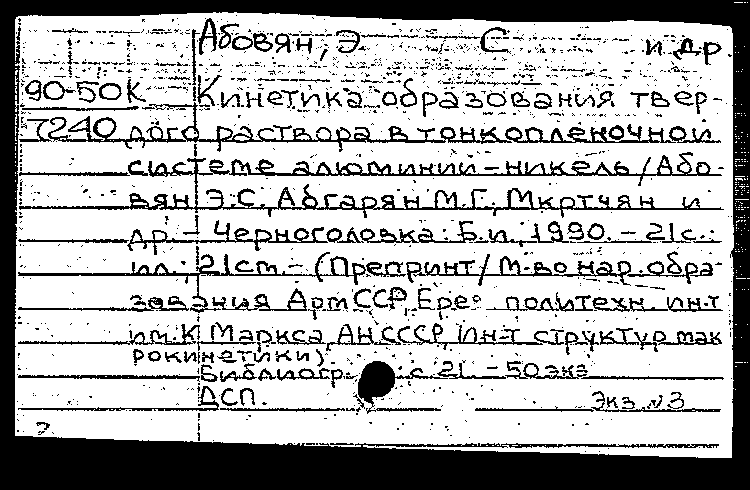 Абовян, Э. С и др.
90-50К Кинетика образования твер-
7240 дого раствора в тонкопленочной
системе алюминий-никель/Або-
вян Э.С., Абгарян М.Г., Мкртчян и
др. - Черноголовка: Б.и., 1990. - 21с.:
ил.; 21см. - (Препринт/М-во нар. обра-
зования АрмССР, Ере политехн. ин-т
им. К Маркса, АН СССР, Ин-т структур мак
рокинетики).
Библиогр. с 21. - 50экз
ДСП. Экз. №3